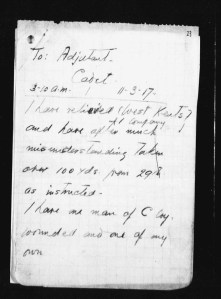 21
To: Adjutant -
Cadet
3-10 a.m. 11-3-17-
I have relieved (West Kents)
A Company
and have after much
misunderstanding taken
over 100 yds from 29th
as instructed -
I have one man of C Coy.
wounded and one of my
own